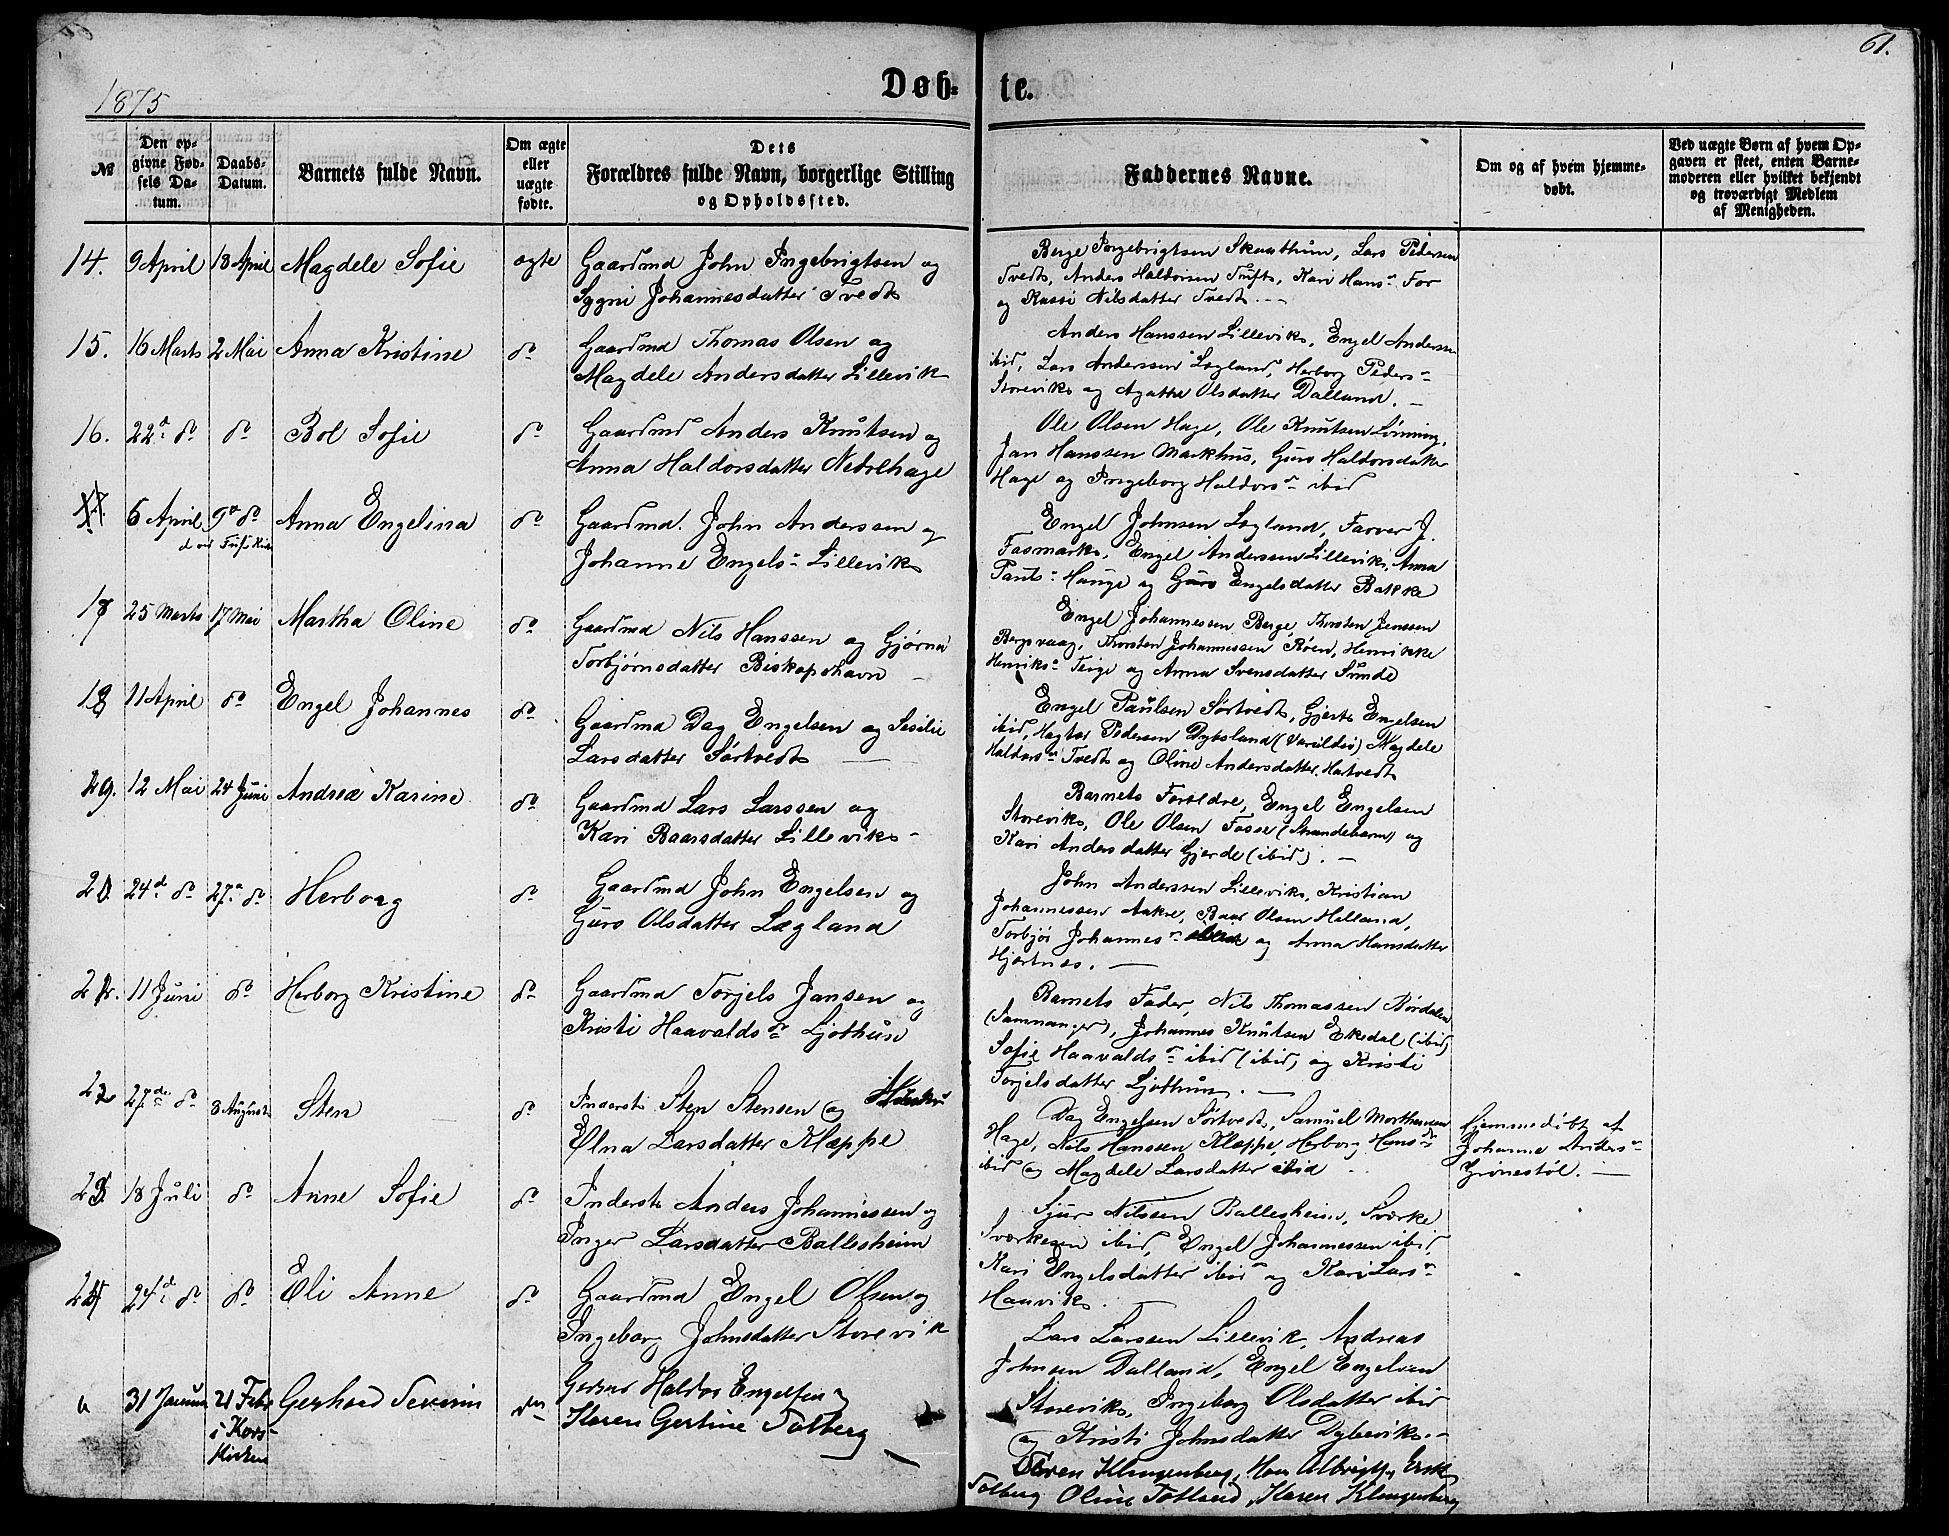 1875
Døb-
te.
61.
№
Den op-
givne Fød-
sels Da-
tum.
Daabs-
Datum.
Barnets fulde Navn.
Om ægte
eller
uægte
fødte.
Dets
Forældres fulde Navn, borgerlige Stilling
og Opholdssted.
Faddernes Navne.
Om og af hvem hjemme-
døbt.
Ved uægte Børn af hvem Op-
gaven er skeet, enten Barne-
moderen eller hvilket bekjendt
og troværdigt Medlem
af Menigheden.
14. 9 April 18 April Magdele Sofie ægte Gaardmd John Ingebrigtsen og
Sygni Johannesdatter Tvedt
Berge Ingebrigtsen Skaathun, Lars Pedersen
Tvedt, Anders Haldorsen Tufte, Kari Hans
og Nilsdatter Tvedt. —
15. 16 Marts 2 Mai Anna Kristine do Gaardmd Thomas Olsen og
Magdele Andersdatter Lillevik
Anders Hanssen Lillevik, Engel Anderssen
ibid, Lars Anderssen Lægland, Herborg Peders
Storevik og Agatha Olsdatter Dalland. —
16. 22d do do Bol Sofie do Gaardmd Anders Knutsen og
Anna Haldorsdatter Nedrehage
Ole Olsen Hage, Ole Knutsen Lønning,
Jan Hanssen Markhus, Guro Haldorsdatter
Hage og Ingeborg Haldors ibid
6 April 9de do Anna Engelina do Gaardmd. John Anderssen og
Johanne Engels Lillevik
Engel Johnsen Lægland, Farver J.
Fasmark, Engel Anderssen Lillevik, Anna
Hauge og Guro Engelsdatter Bakke
17 25 Marts 17 Mai Martha Oline do Gaardmd Nils Hanssen og Gjørna
Torbjørnsdatter Biskopshavn —
Engel Johannessen Berge Thorsten Jenssen
Bergsvaag, Thorsten Johannessen Røen, Henrikke
Henriks Teige og Anna Svensdatter Sunde
18 11 April do Engel Johannes do Gaardmd Dag Engelsen og Sesilie
Larsdatter Sørtvedt —
Engel Paulsen Sørtvedt, Gjert Engelsen
ibid, Pedersen Dybsland (Varaldsø) Magdele
Haldors Tvedt og Oline Andersdatter Hartvedt
12 Mai 24 Juni Andrea Karine do Gaardmd Lars Larssen og
Kari Baarsdatter Lillevik —
Barnets Foreldre, Engel Engelsen
Storevik, Ole Olsen Fosse (Strandebarm) og
Kari Andersdatter Gjerde (ibid). —
20 24d do 27de do Herborg do Gaardmd John Engelsen og
Guro Olsdatter Lægland
John Anderssen Lillevik, Kristian
Johannessen Aakre, Baar Olsen Helland,
Torbjør Johannes og Anna Hansdatter
Hjortnæs. —
21. 11 Juni do Herborg Kristine do Gaardmd Torjels Jansen og
Kristi Haavalds Ljothun
Barnets Fader, Nils Thomassen Børdalen
(Samnanger), Johannes Knutsen Ekedal (ibid)
Sofie Haavalds ibid (ibid) og Kristi
Torjelsdatter Ljothun. —
22 27de do 8 August Sten do Inderst Sten Stensen og
Elna Larsdatter Klæppe
Dag Engelsen Sørtvedt, Samuel Morthensen
Hage, Nils Hanssen Klæppe, Herborg Hans
ibid og Magdele Larsdatter ibid
Hjemmedøbt af
Johanna Anders
Grønestøl. —
23 18 Juli do Anne Sofie do Inderst Anders Johannessen og
Inger Larsdatter Ballesheim
Sjur Nilssen Ballesheim, Sværke
Sværkesen ibid, Engel Johannessen ibid,
Kari Engelsdatter ibid og Kari Lars
Haavik.
24 24d do do Eli Anne do Gaardmd Engel Olsen og
Ingeborg Johnsdatter Storevik
Lars Larssen Lillevik, Andreas
Johnsen Dalland, Engel Engelsen
Storevik, Ingeborg Olsdatter ibid
og Kristi Johnsdatter Dybevik. —
a 31 Januar 21 Febr Gerhard Severin do Haldor Engelsen og
i Kors-
kirken
Karen Gertine Solberg
Klingenberg, Hans
Solberg Oline Totland, Karen Klingenberg